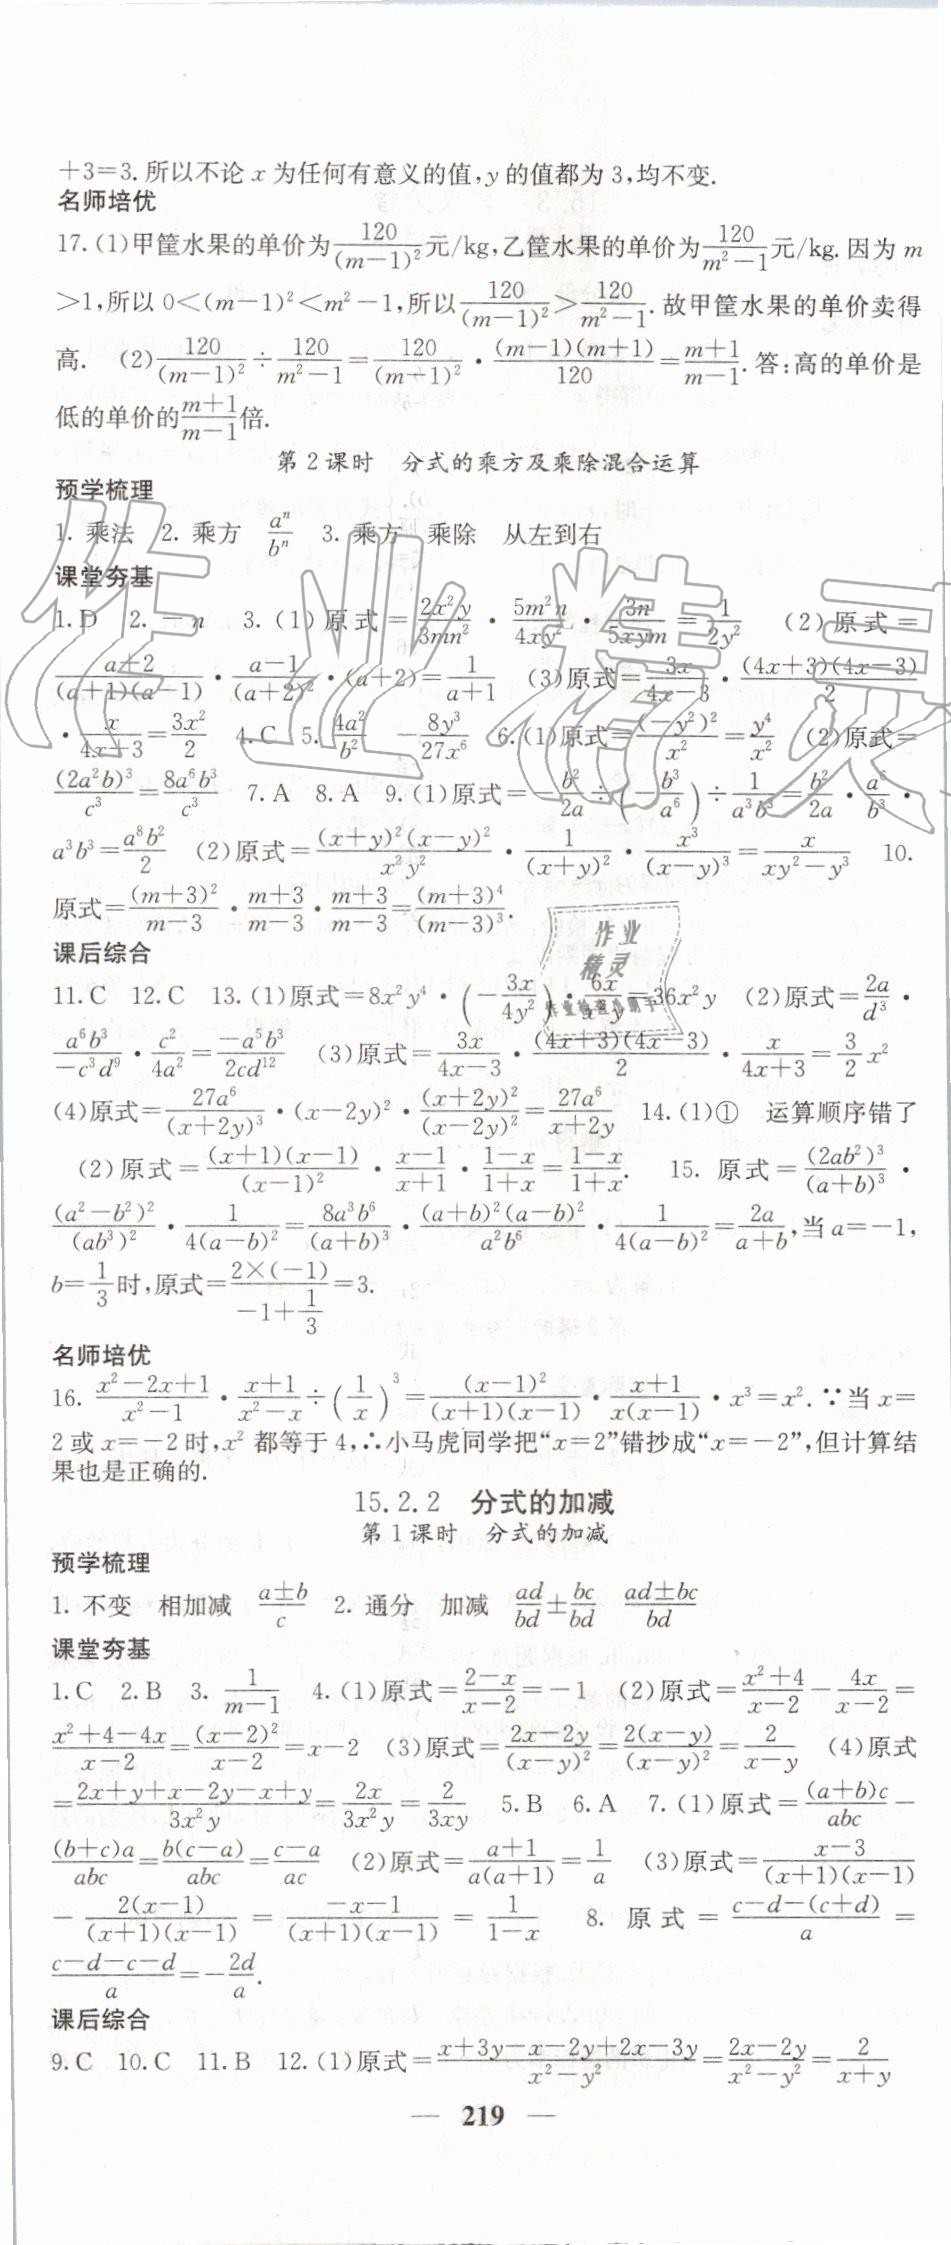 +3=3.所以不论 x 为任何有意义的值,y 的值都为 3,均不变.
名师培优
17.(1)甲筐水果的单价为120/(m-1)²元/kg,乙筐水果的单价为120/(m²-1)元/kg.因为 m
>1,所以 0<(m-1)²<m²-1,所以120/(m-1)²>120/(m²-1).故甲筐水果的单价卖得
高. (2)120/(m-1)²÷120/(m²-1)=120/(m-1)²·(m-1)(m+1)/120=(m+1)/(m-1).答:高的单价是
低的单价的(m+1)/(m-1)倍.
第 2 课时 分式的乘方及乘除混合运算
预学梳理
1. 乘法 2. 乘方 aⁿ/bⁿ 3. 乘方 乘除 从左到右
课堂夯基
1.D 2. -n 3.(1)原式=2x²y/3mn²·5m²n/4xy²·3n/5xym=1/2y² (2)原式=
(a+2)/(a+1)(a-1)·(a-1)/(a+2)²·(a+2)=1/(a+1) (3)原式=3x/(4x-3)·(4x+3)(4x-3)/2
·x/(4x+3)=3x²/2 4.C 5. 4a²/b² -8y³/27x⁶ 6.(1)原式=(-y²)²/x²=y⁴/x² (2)原式=
(2a²b)³/c³=8a⁶b³/c³ 7.A 8.A 9.(1)原式=-b²/2a÷(-b³/a⁶)÷1/a³b³=b²/2a·a⁶/b³·
a³b³=a⁸b²/2 (2)原式=(x+y)²(x-y)²/x²y²·1/(x+y)²·x³/(x-y)³=x/(xy²-y³) 10.
原式=(m+3)²/(m-3)·(m+3)/(m-3)·(m+3)/(m-3)=(m+3)⁴/(m-3)³.
课后综合
11.C 12.C 13.(1)原式=8x²y⁴·(-3x/4y²)·=36x²y (2)原式=2a/d³·
a⁶b³/-c³d⁹·c²/4a²=-a⁵b³/2cd¹² (3)原式=3x/(4x-3)·(4x+3)(4x-3)/2·x/(4x+3)=3/2 x²
(4)原式=27a⁶/(x+2y)³·(x-2y)²·(x+2y)²/(x-2y)²=27a⁶/(x+2y) 14.(1)① 运算顺序错了
(2)原式=(x+1)(x-1)/(x-1)²·(x-1)/(x+1)·(1-x)/(1+x)=(1-x)/(1+x). 15. 原式=(2ab²)³/(a+b)³·
(a²-b²)²/(ab³)²·1/4(a-b)²=8a³b⁶/(a+b)³·(a+b)²(a-b)²/a²b⁶·1/4(a-b)²=2a/(a+b),当 a=-1,
b=1/3时,原式=2×(-1)/(-1+1/3)=3.
名师培优
16. (x²-2x+1)/(x²-1)·(x+1)/(x²-x)÷(1/x)³=(x-1)²/(x+1)(x-1)·(x+1)/x(x-1)·x³=x².∵当 x=
2 或 x=-2 时,x² 都等于 4,∴小马虎同学把“x=2”错抄成“x=-2”,但计算结
果也是正确的.
15.2.2 分式的加减
第 1 课时 分式的加减
预学梳理
1. 不变 相加减 (a±b)/c 2. 通分 加减 ad/bd±bc/bd (ad±bc)/bd
课堂夯基
1.C 2.B 3. 1/(m-1) 4.(1)原式=(2-x)/(x-2)=-1 (2)原式=(x²+4)/(x-2)-4x/(x-2)=
(x²+4-4x)/(x-2)=(x-2)²/(x-2)=x-2 (3)原式=(2x-2y)/(x-y)²=2(x-y)/(x-y)²=2/(x-y) (4)原式
=(2x+y+x-2y-x+y)/3x²y=2x/3x²y=2/3xy 5.B 6.A 7.(1)原式=(a+b)c/abc-
(b+c)a/abc=b(c-a)/abc=(c-a)/ac (2)原式=(a+1)/a(a+1)=1/a (3)原式=(x-3)/(x+1)(x-1)
-2(x-1)/(x+1)(x-1)=(-x-1)/(x+1)(x-1)=1/(1-x) 8. 原式=(c-d-(c+d))/a=
(c-d-c-d)/a=-2d/a.
课后综合
9.C 10.C 11.B 12.(1)原式=(x+3y-x-2y+2x-3y)/(x²-y²)=(2x-2y)/(x²-y²)=2/(x+y)
— 219 —
作业精灵
作业
精灵